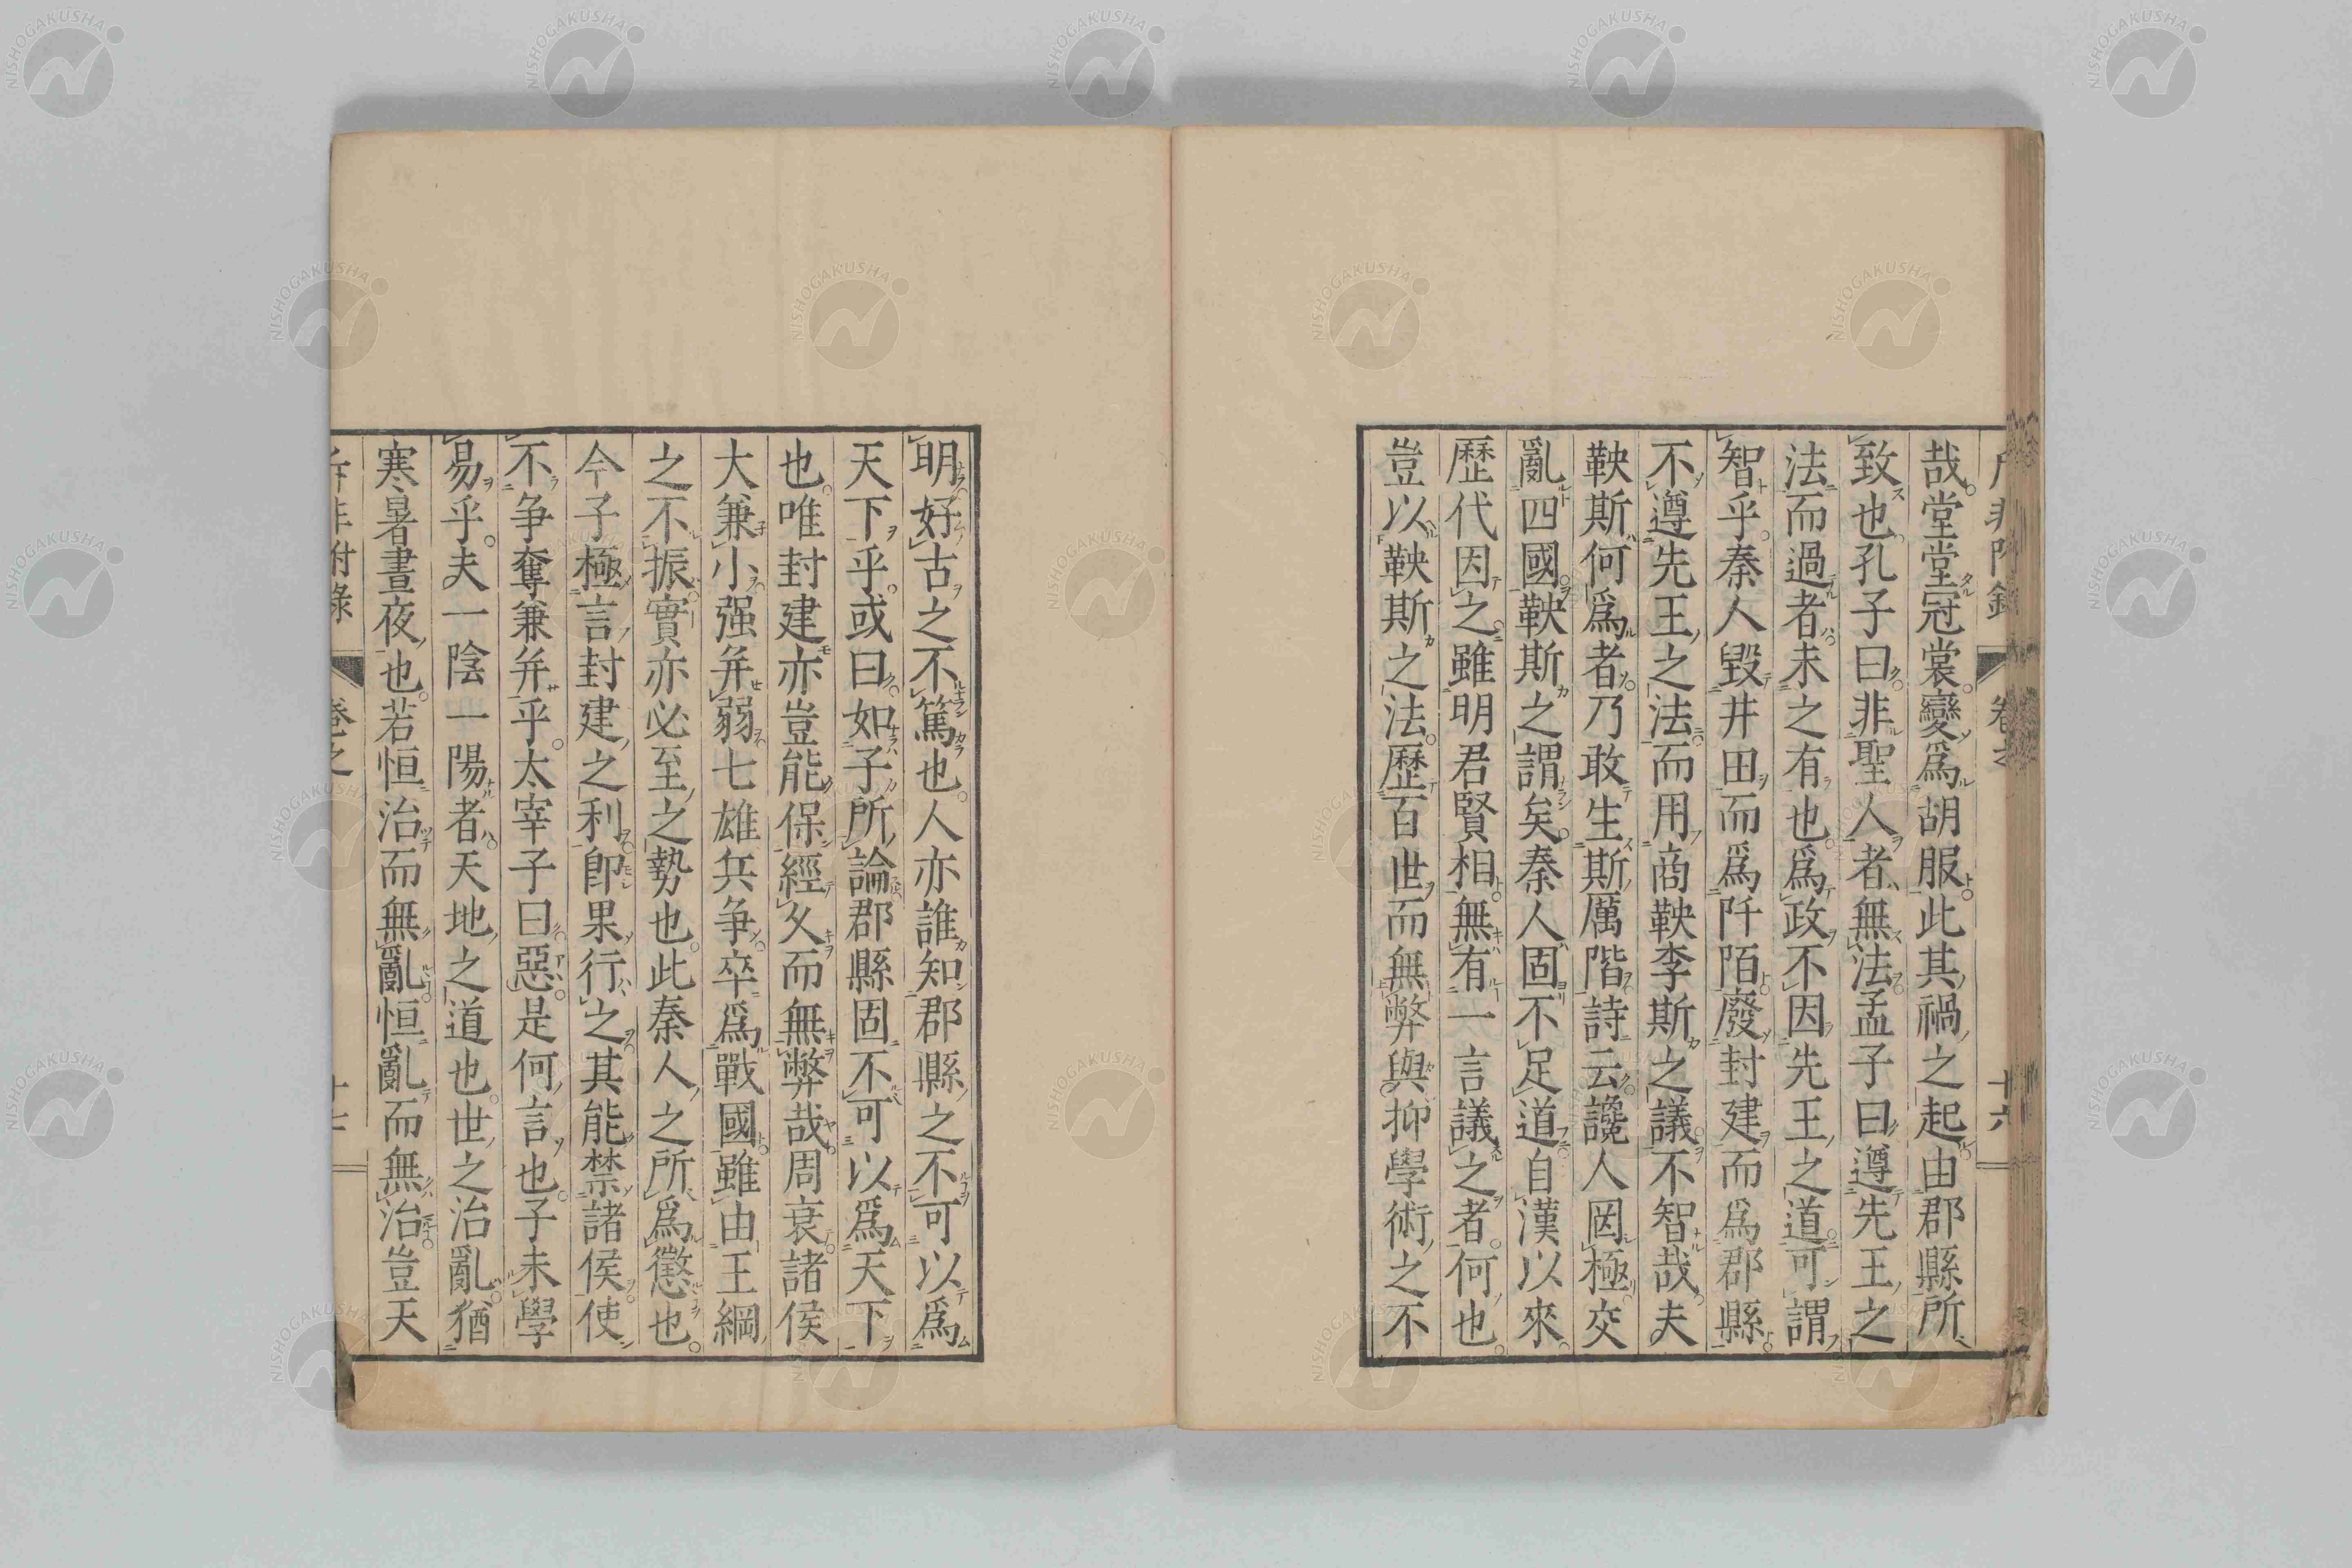 哉。堂堂冠裳。變爲胡服。此其禍之起由郡縣所
致也。孔子曰。非聖人者、無法。孟子曰遵先王之
法而過者。未之有也。爲政不因先王之道。可謂
智乎。秦人毀井田而爲阡陌。廢封建而爲郡縣。
不遵先王之法。而用商鞅李斯之議。不智哉。夫
鞅斯何爲者。乃敢生斯厲階。詩云。讒人罔極。交
亂四國。鞅斯之謂矣。秦人固不足道。自漢以來。
歷代因之。雖明君賢相。無有一言議之者。何也。
豈以鞅斯之法。歷百世而無弊與。抑學術之不
十六
明。好古之不篤也。人亦誰知郡縣之不可以爲
天下乎。或曰。如子所論。郡縣固不可以爲天下
也。唯封建亦豈能保經久而無弊哉。周衰。諸侯
大兼小。强并弱。七雄兵爭。卒爲戰國。雖由王綱
之不振。實亦必至之勢也。此秦人之所爲懲也。
今子極言封建之利。卽果行之。其能禁諸侯。使
不爭奪兼并乎。太宰子曰。惡。是何言也。子未學
易乎。夫一陰一陽者。天地之道也。世之治亂。猶
寒暑晝夜也。若恒治而無亂。恒亂而無治。豈天